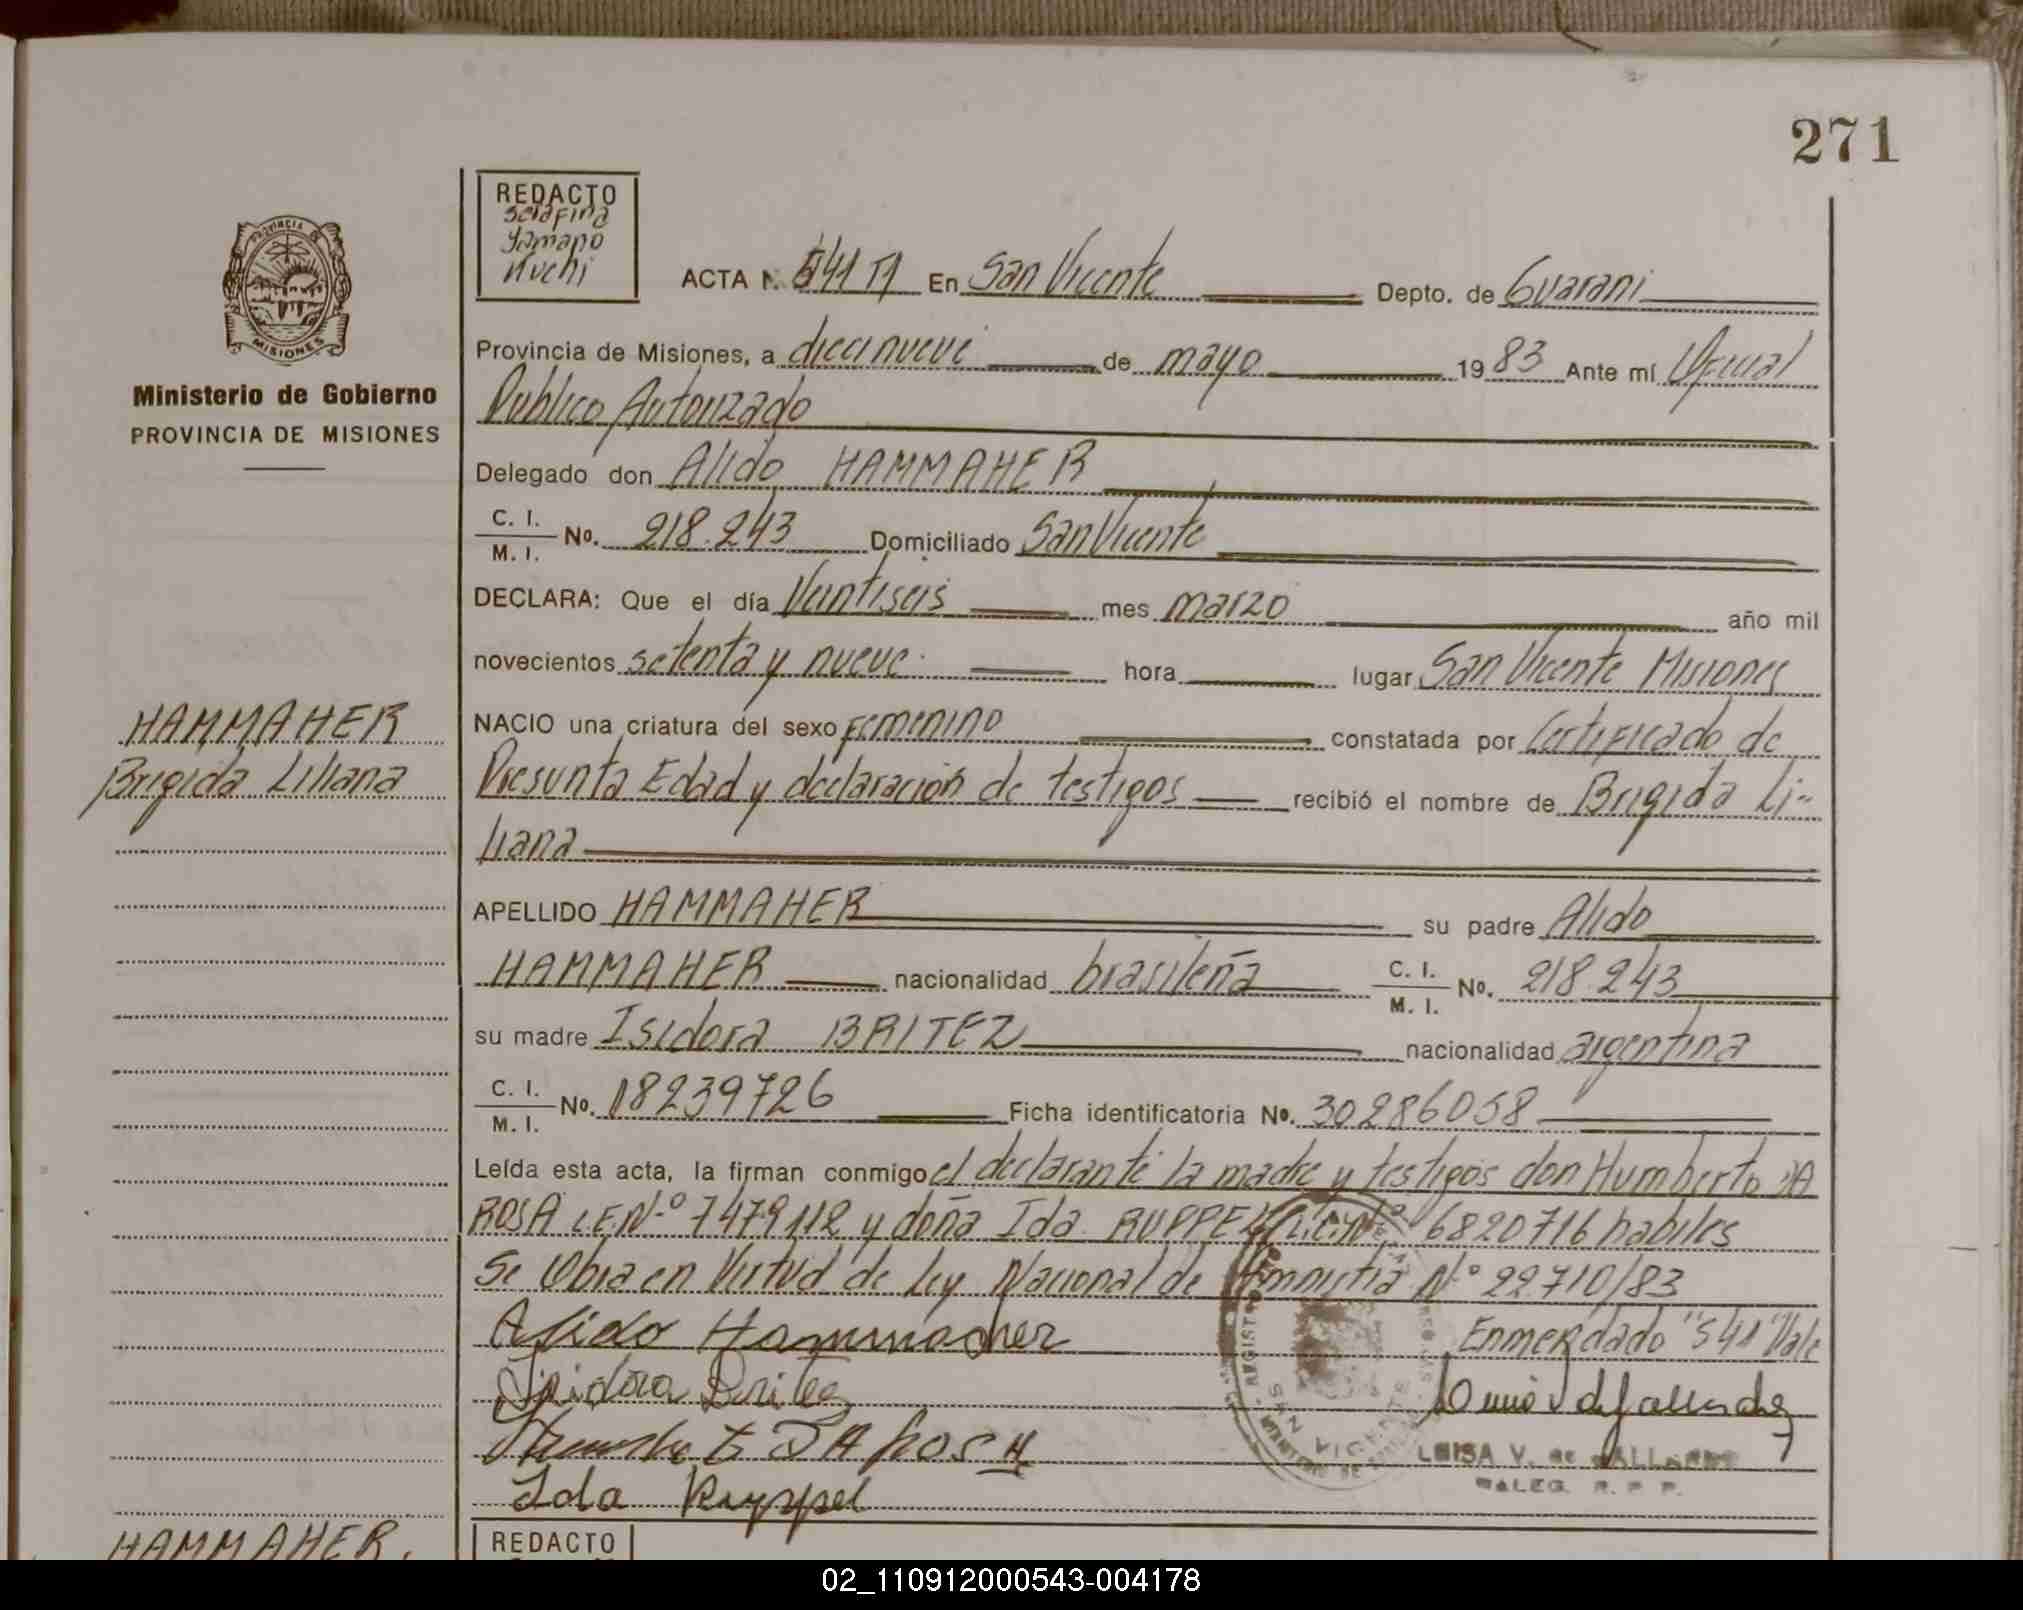 271
REDACTO
Serafina
Yamapo
Kuchi
PROVINCIA DE
MISIONES
ACTA N. 541 T1 En San Vicente Depto. de Guarani
Provincia de Misiones, a diecinueve de mayo 1983 Ante mí Oficial
Ministerio de Gobierno
PROVINCIA DE MISIONES
Publico Autorizado
Delegado don Alido HAMMAHER
C. I.
M. I. No. 218.243 Domiciliado San Vicente
DECLARA: Que el día Veintiseis mes marzo año mil
novecientos setenta y nueve. hora lugar San Vicente Misiones
HAMMAHER
Brigida Liliana
NACIO una criatura del sexo femenino constatada por Certificado de
Presunta Edad y declaración de testigos recibió el nombre de Brigida Li-
liana
APELLIDO HAMMAHER su padre Alido
HAMMAHER nacionalidad brasileña C. I. M. I. No. 218.243
su madre Isidora BRITEZ nacionalidad argentina
C. I.
M. I. No. 18239726 Ficha identificatoria No. 30286058
Leída esta acta, la firman conmigo el declarante la madre y testigos don Humberto DA
ROSA L.E.N-º 7479112 y doña Ida RUPPEL L.C.Nº 6820716 habiles
Se Obra en Virtud de Ley Nacional de Amnistia N-º 22.710/83
Alido Hammacher
Enmendado "541" Vale
Isidora Britez
Humberto DA ROSA
Ida Ruppel
SAN VICENTE
LUISA V. de GALLARDO
DELEG. R. P. P.
HAMMAHER.
REDACTO
02_110912000543-004178